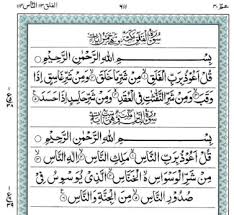 سُوْرَةُ الْفَلَقِ
بِسْمِ اللهِ الرَّحْمٰنِ الرَّحِيْمِ
قُلْ اَعُوْذُ بِرَبِّ الْفَلَقِ مِنْ شَرِّ مَا خَلَقَ وَمِنْ شَرِّ غَاسِقٍ اِذَا
وَقَبَ وَمِنْ شَرِّ النَّفّٰثٰتِ فِى الْعُقَدِ وَمِنْ شَرِّ حَاسِدٍ اِذَا حَسَدَ
سُوْرَةُ النَّاسِ
بِسْمِ اللهِ الرَّحْمٰنِ الرَّحِيْمِ
قُلْ اَعُوْذُ بِرَبِّ النَّاسِ مَلِكِ النَّاسِ اِلٰهِ النَّاسِ
مِنْ شَرِّ الْوَسْوَاسِ الْخَنَّاسِ الَّذِىْ يُوَسْوِسُ فِىْ
صُدُوْرِ النَّاسِ مِنَ الْجِنَّةِ وَالنَّاسِ